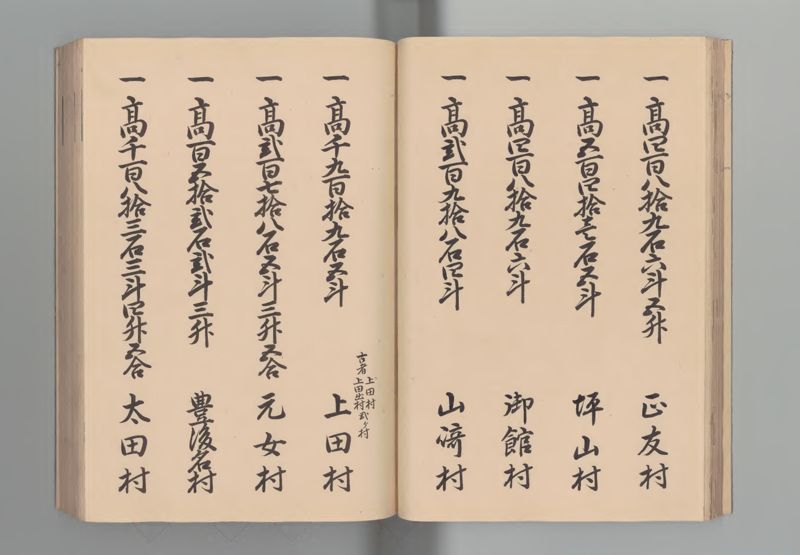 一 高四百八拾九石六斗五升 正友村
一 高五百四拾壱石五斗 坪山村
一 高四百八拾九石六斗 御館村
一 高弐百九拾八石四斗 山﨑村
古者上田村
上田出村弐ヶ村
一 高千九百拾九石五斗 上田村
一 高弐百七拾八石五斗三升五合 元女村
一 高百五拾弐石弐斗三升 豊後名村
一 高千百八拾三石三斗四升五合 太田村